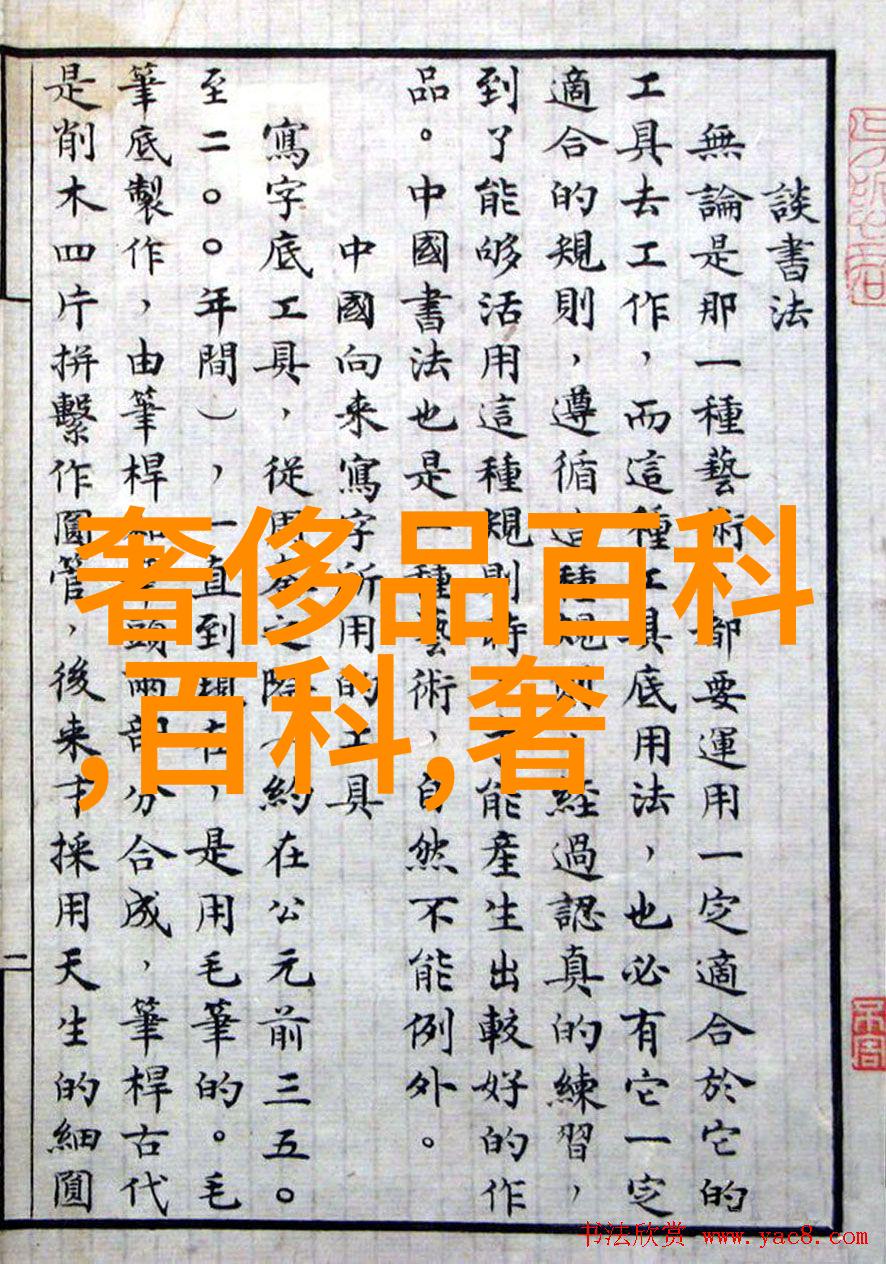 談書法
無論是那一種藝術,都要運用一定適合於它的
工具去工作,而這種工具底用法,也必有它一定
適合的規則,遵循這種規則,經過認真的練習,
到了能够活用這種規則時,才能產生出較好的作
品。中國書法也是一種藝術,自然不能例外。
中國向来寫字所用的工具
寫字底工具,從周秦之際(約在公元前三五〇
至二〇〇年間),一直到現在,是用毛筆的。毛
筆底製作,由筆桿和筆頭兩部分合成,筆桿古代
是削木四片拼繫作圓管,後来才採用天生的細圓
二
奢侈品百科
,百科,奢
书法欣赏 www.yac8.com